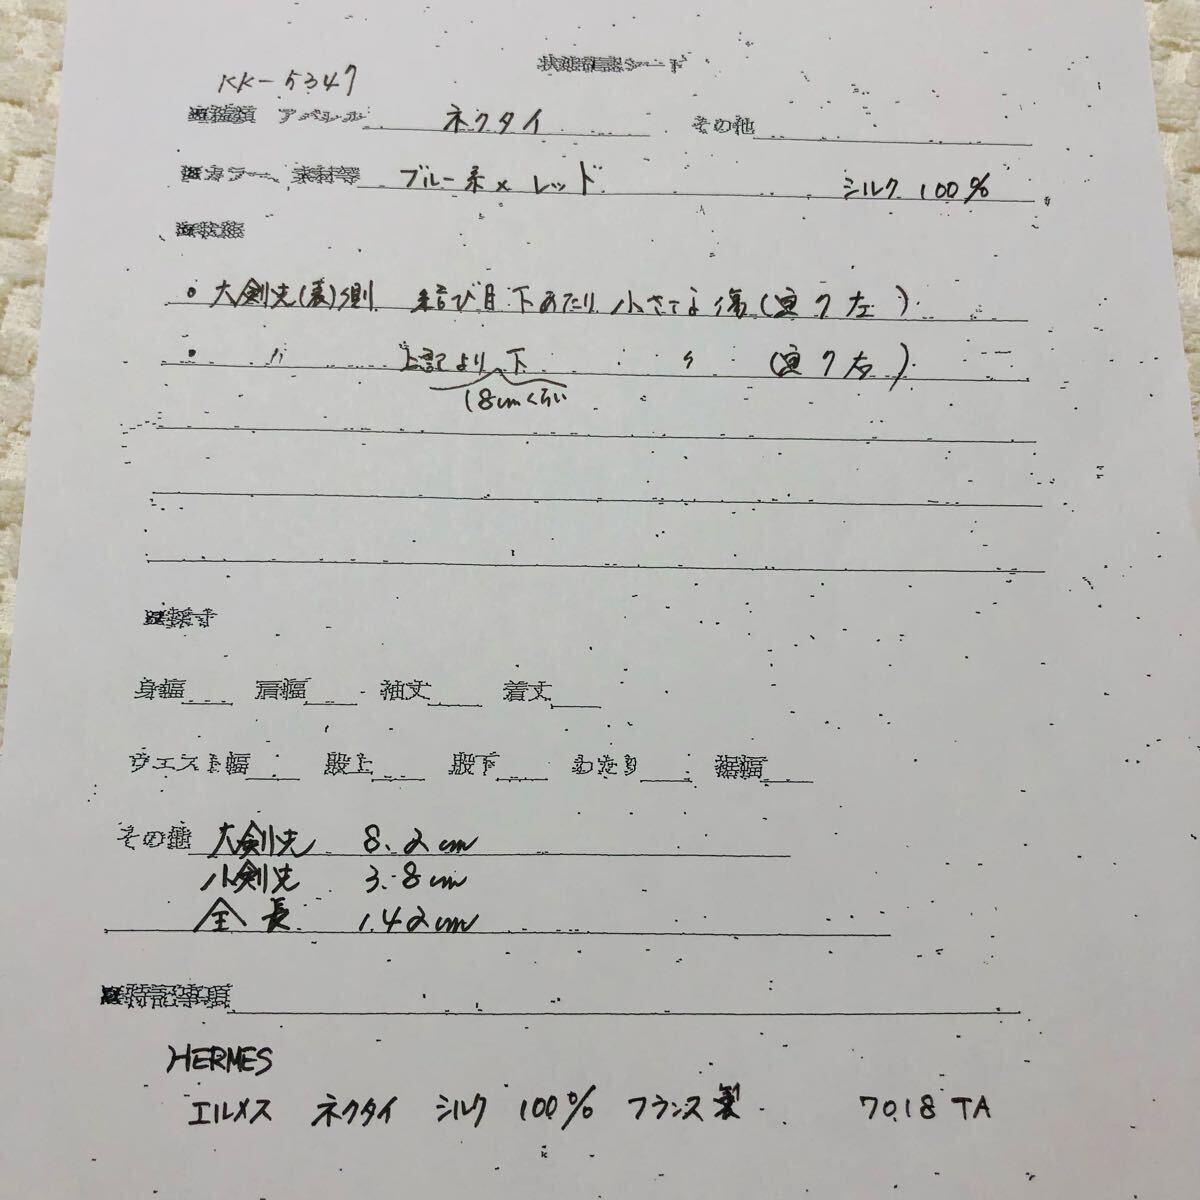 状態確認シート
KK-5347
■種類 アパレル ネクタイ その他
■カラー、素材等 ブルー系×レッド シルク 100%
■状態
• 大剣先(裏)側 結び目下あたり 小さな傷(写り左)
• 〃 上記より下 〃 (写り右)
18cmくらい
■採寸
身幅 肩幅 袖丈 着丈
ウエスト幅 股上 股下 わたり 裾幅
その他 大剣先 8.2cm
小剣先 3.8cm
全長 142cm
■特記事項
HERMES
エルメス ネクタイ シルク 100% フランス製 7018 TA